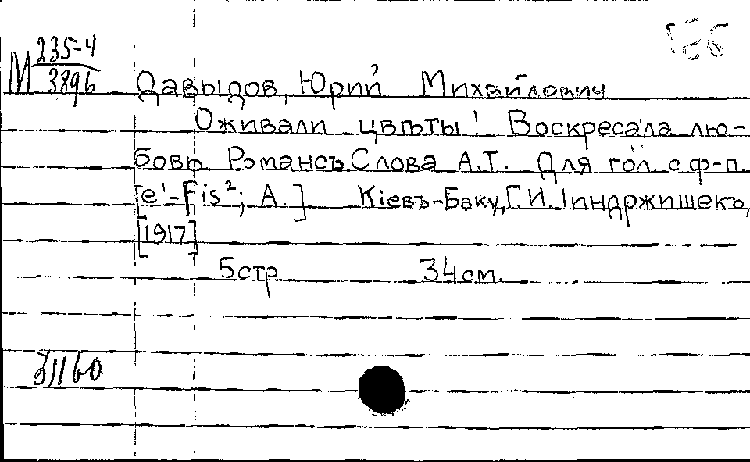 М 235-4
3896
Давыдов, Юрий Михайлович
Оживали цвѣты! Воскресала лю-
бовь Романсъ Слова А.Т. Для гол. с ф-п.
[e¹-Fis²; A.] Кіевъ-Баку, Г.И. Индржишекъ,
[1917]
5стр 34см.
31160